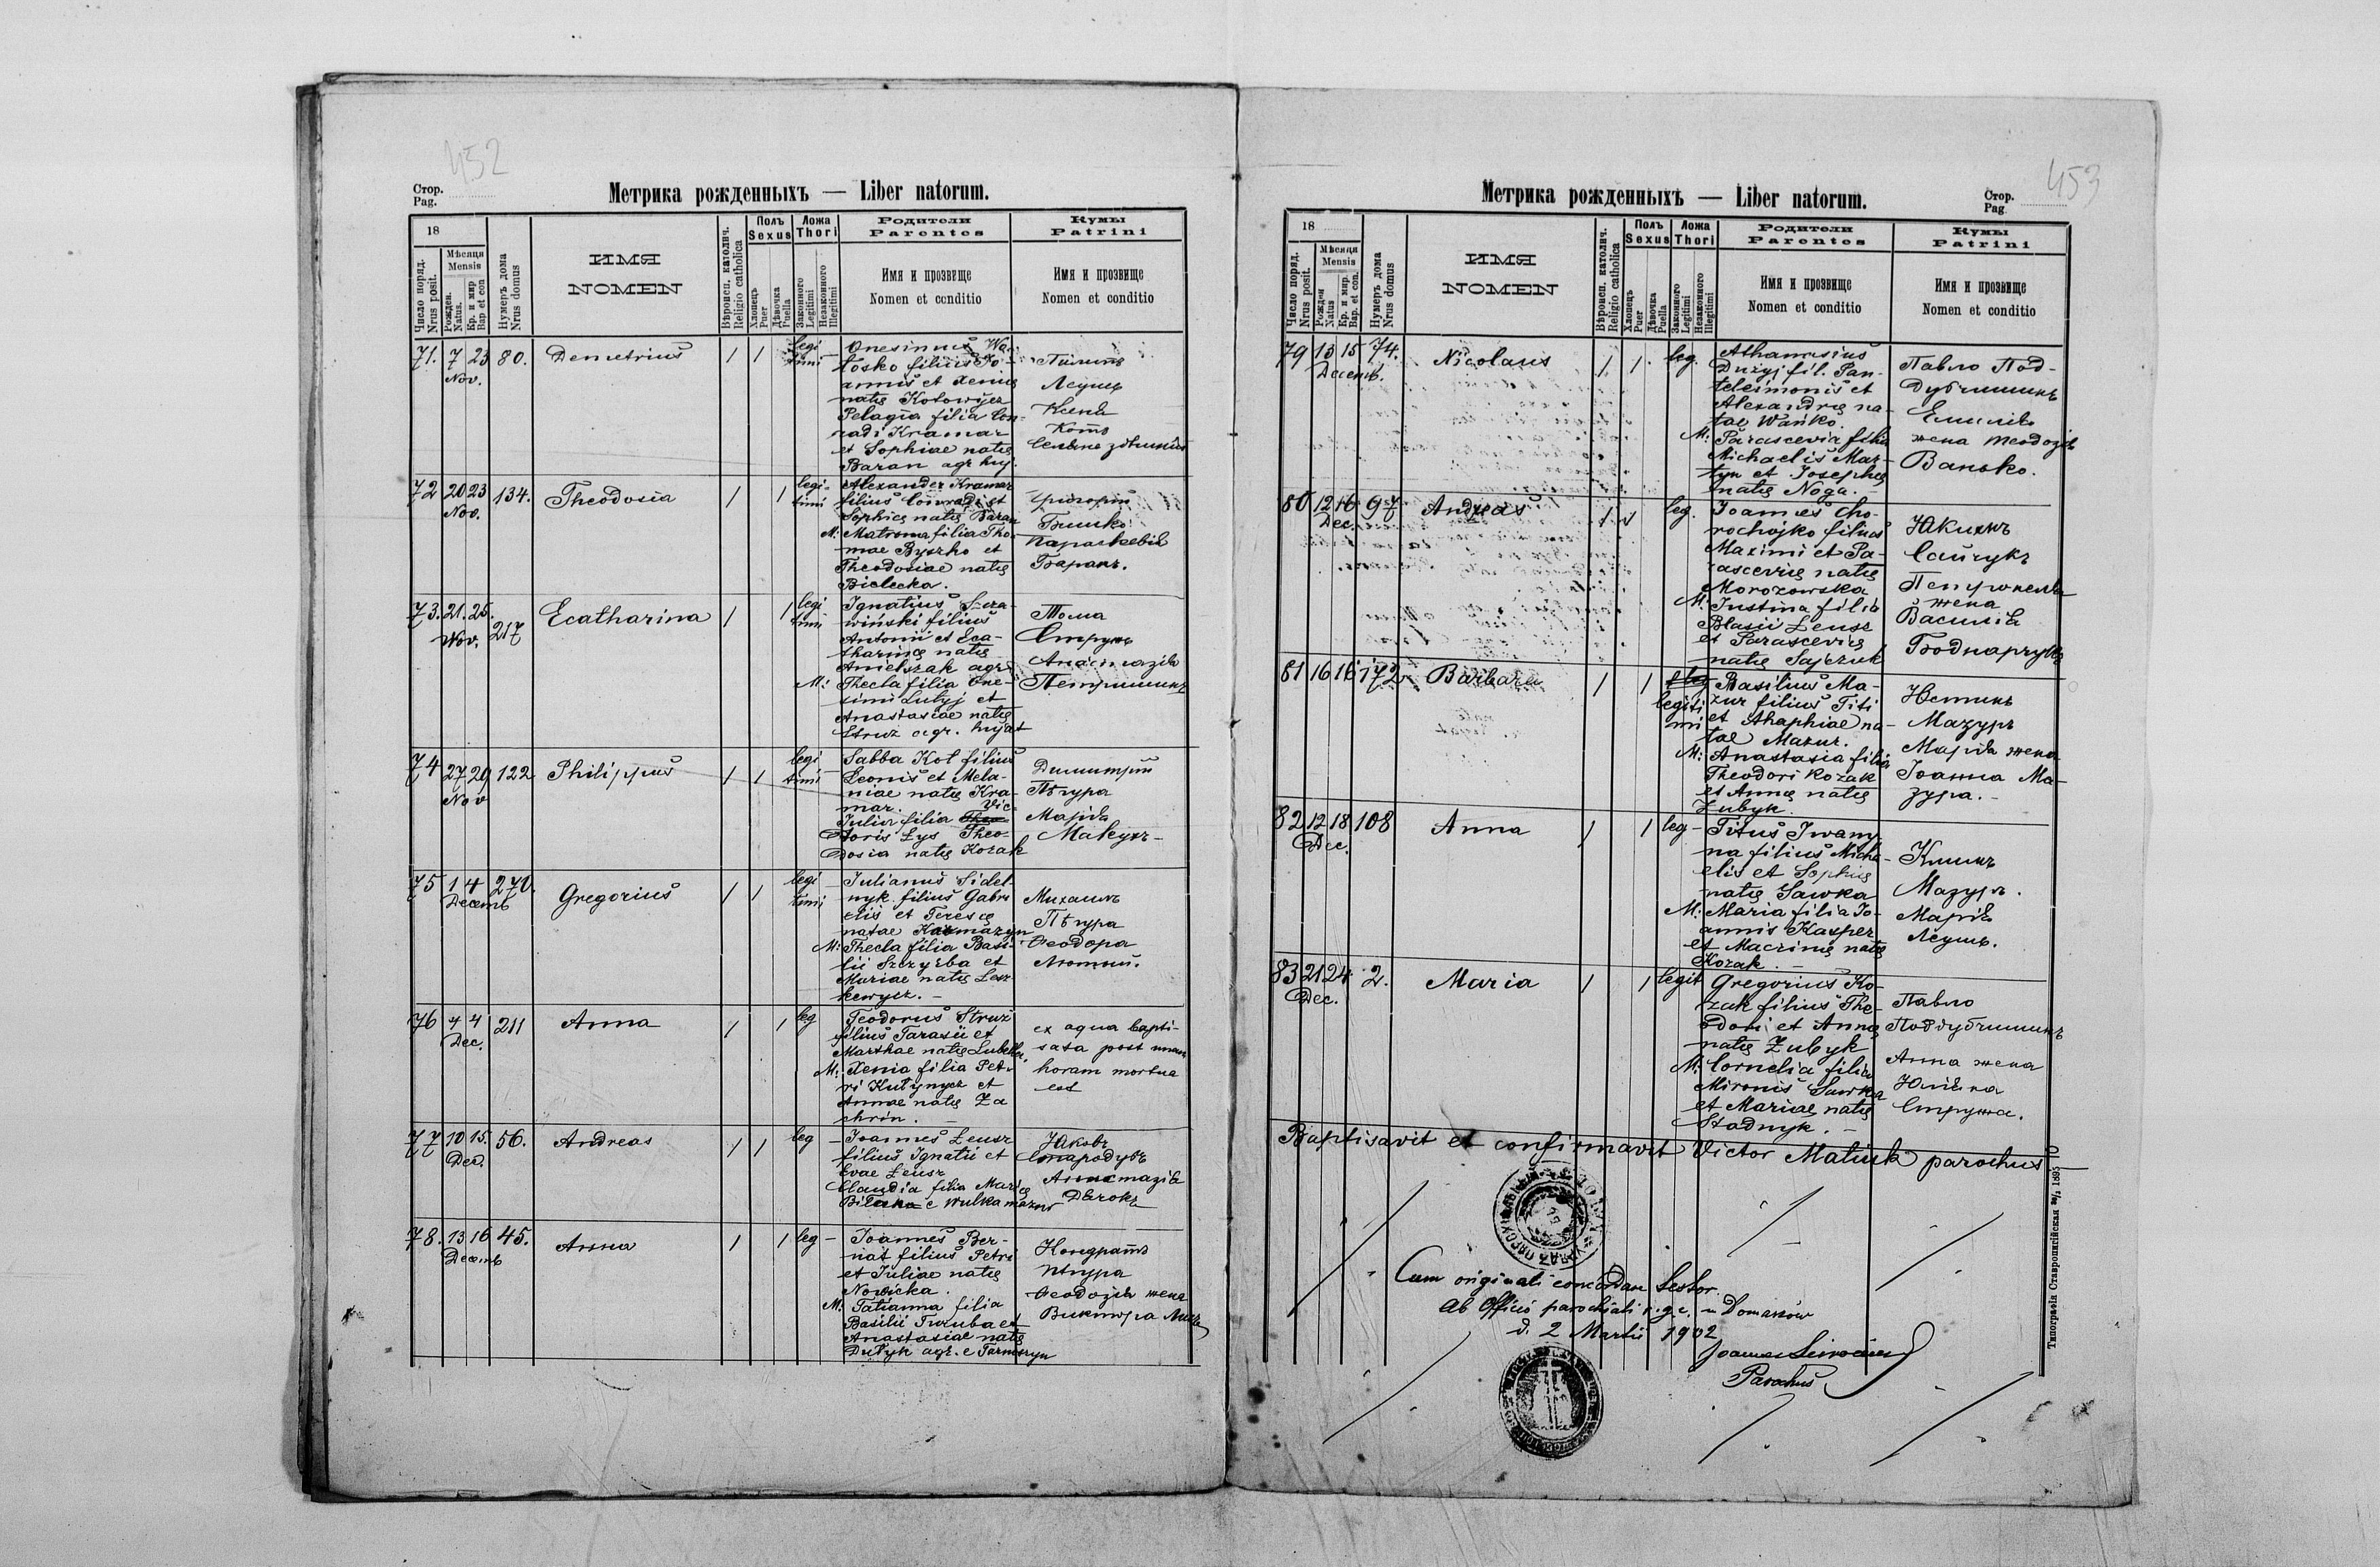 452
Стор.
Pag.
Метрика рожденныхъ — Liber natorum.
18
Число поряд.
Nrus posit.
Мѣсяця
Mensis
Рожден.
Natus.
Кр. и мир
Bap et con
Нумеръ дома
Nrus domus
ИМЯ
NOMEN
Вѣроисп. католич.
Religio catholica
Полъ
Sexus
Хлопець
Puer
Дѣвочка
Puella
Ложа
Thori
Законного
Legitimi
Незаконного
Illegitimi
Родители
Parentes
Имя и прозвище
Nomen et conditio
Кумы
Patrini
Имя и прозвище
Nomen et conditio
71. 7 23 80. Demetrius 1 1 legi
Nov. timi
Onesimus Wa-
tosko filius Jo-
annis et Xenię
natę Kotowycz
Pelagia filia Con-
radi Kramar
et Sophiae natę
Baran agr huj.
Пилипъ
Леушъ
Ксеня
Котъ
72 20 23 134. Theodosia 1 1 legi-
Nov. timi
Alexander Kramar
filius Conradi et
Sophię natę Baran
M: Matrona filia Tho-
mae Byszko et
Theodosiae natę
Bielecka.
Григорій
Бишко
Параскевія
Баранъ.
73. 21. 25. 217 Ecatharina 1 1 legi
Nov. timi
Ignatius Scza-
wiński filius
Antonii et Eca-
tharinę natę
Amielszak agr.
M: Thecla filia One-
simi Lutyj et
Anastasiae natę
Struz agr. hujat
Тома
Струзъ
Анастазія
Петришинъ
74 27 29 122 Philippus 1 1 legi
Nov timi
Sabba Kot filius
Leonis et Mela-
niae natę Kra-
mar. Vic
Julia filia Theo-
toris Łys Theo-
dosia natę Kozak
Димитрій
Пѣгура
Марія
Макухъ-
75 1 4 270. Gregorius 1 1 legi
Decemb timi
Julianus Sidel-
nyk filius Gabri
elis et Teresę
natae Karmazyn
M: Thecla filia Basi-
lii Szczyrba et
Mariae natę Lesz
kewycz. -
Михаилъ
Пѣгура
Ѳеодора
Лютый.
76 4 4 211 Anna 1 1 leg
Dec.
Teodorus Struz
filius Tarasii et
Marthae natę Lubelka.
M: Xenia filia Pet-
ri Kutynycz et
Annae natę Za
chrin. -
ex aqua bapti-
sata post unam
horam mortua
est
77 10 15. 56. Andreas 1 1 leg -
Dec.
Joannes Leusz
filius Ignatii et
Evae Leusz
Claudia filia Marię
e Wulka mazow
Яковъ
Стародубъ
Анастазія
Дѣяокъ
78. 13 16 45. Anna 1 1 leg -
Decemb
Joannes Ber-
nat filius Petri
et Juliae natę
Nowicka.
M: Tatianna filia
Basilii Truuba et
Anastasiae natę
Dutyk agr. e Tarnoszyn
Кондратъ
Пѣгура
Ѳеодозія жена
Виктора
453
Стор.
Pag
Метрика рожденныхъ — Liber natorum.
18
Число поряд.
Nrus posit.
Мѣсяця
Mensis
Рожден
Natus
Кр. и мир.
Bap. et con.
Нумеръ дома
Nrus domus
ИМЯ
NOMEN
Вѣроисп. католич.
Religio catholica
Полъ
Sexus
Хлопець
Puer
Дѣвочка
Puella
Ложа
Thori
Законного
Legitimi
Незаконного
Illegitimi
Родители
Parentes
Имя и прозвище
Nomen et conditio
Кумы
Patrini
Имя и прозвище
Nomen et conditio
79 13 15 74. Nicolaus 1. 1. leg.
Decemb.
Athanasius
Dużyj fil. Pan-
teleimonis et
Alexandrę na-
tae Wańko.
M: Parascevia filia
Michaelis Mar-
tyn et Josephę
natę Noga. -
Павло Под-
дубчишинъ
Емилія
жена Теодозія
Ванько.
80 12 16 97 Andreas 1 1 leg.
Dec.
Joannes Cho-
rochojko filius
Maximi et Pa-
rascevię natę
Morozowska
M: Justina filia
Blasii Leusz
et Parascevię
natę Sajczuk
Якимъ
Сайчукъ
Петронеля
жена
Василія
Боднарчукъ
81 16 16 172 Barbara 1 1 leg
legiti
mi
Basilius Ma-
zur filius Titi
et Ahaphiae na-
tae Mazur.
M: Anastasia filia
Theodori Kozak
et Annę natę
Zubyk
Юстинъ
Мазуръ
Марія жена
Іоанна Ма-
зура. -
82 12 18 108 Anna 1 1 leg -
Dec.
Titus Iwany-
na filius Micha-
elis et Sophię
natę Sawka
M: Maria filia Jo-
annis Kasper
et Macrinę natę
Kozak. -
Климъ
Мазуръ.
Марія
Леушъ.
83 21 24 2. Maria 1 1 legit
Dec.
Gregorius Ko-
zak filius The-
odori et Annę
natę Zubyk
M: Cornelia filia
Mironis Sawka
et Mariae natę
Stadnyk. -
Павло
Поддубчишинъ
Анна жена
Юліяна
Струзка.
Baptisavit et confirmavit Victor Matiuk parochus
Cum originali concordare testor.
Ab Officio parochiali r. g. c. in Domaszów
d. 2 Martii 1902
Parochus
Типографія Ставропигійская 1895